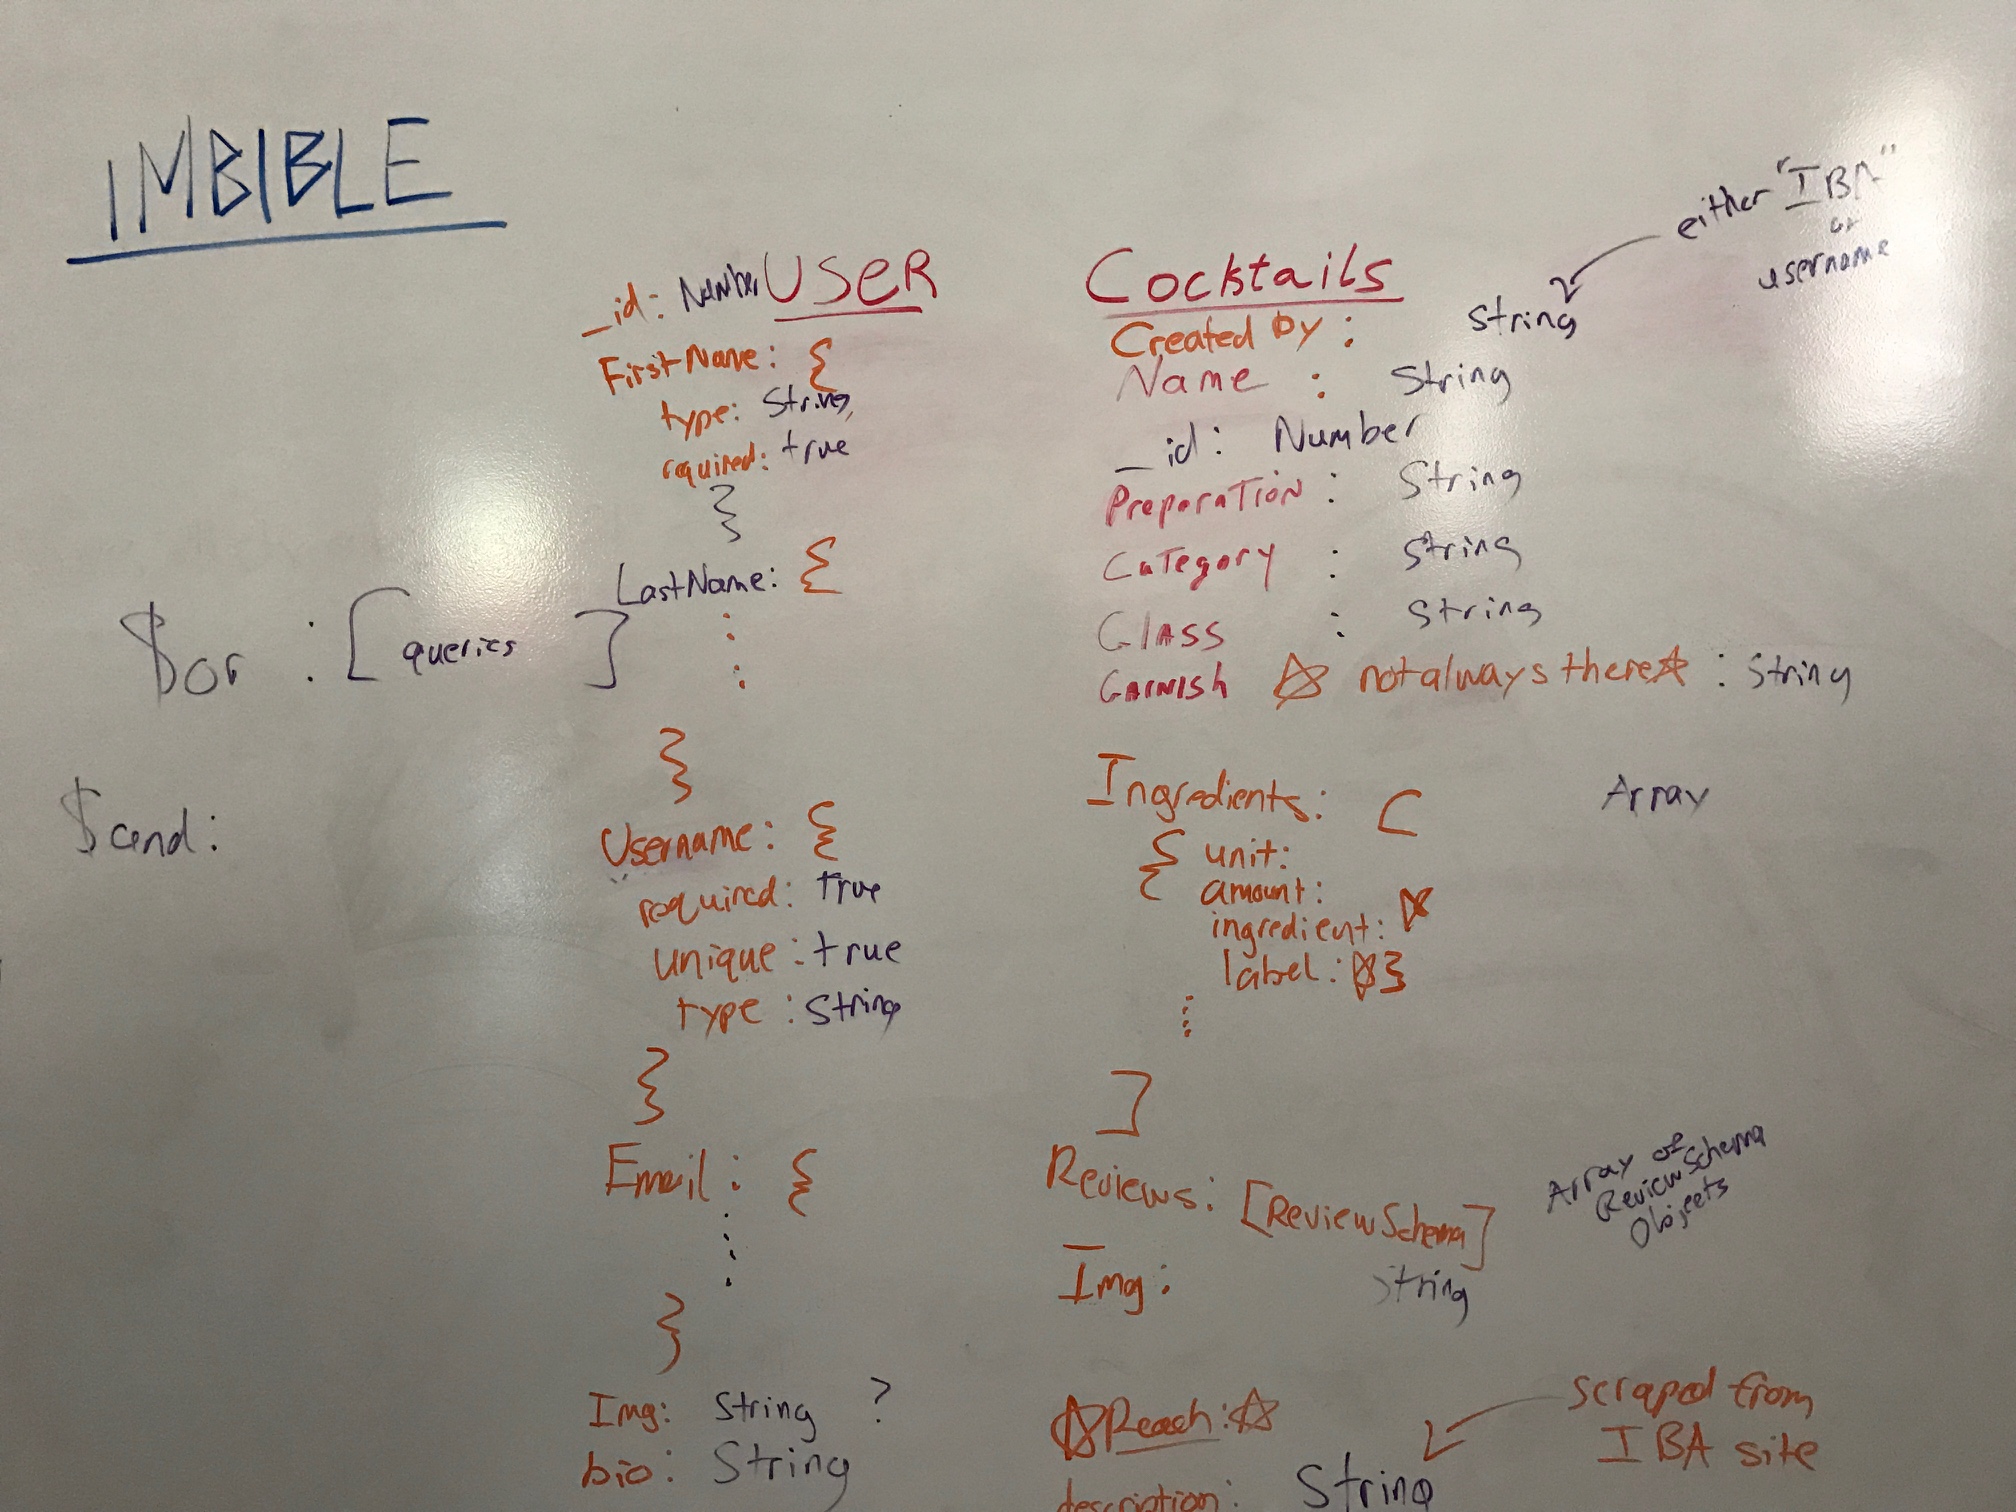 IMBIBLE
USER
_id: Number
FirstName: {
type: String,
required: true
}
LastName: {
:
}
Username: {
required: true
unique: true
type: String
}
Email: {
}
Img: String ?
bio: String
$or : [ queries ]
$and:
Cocktails
either "IBA"
or
username
Created by : String
Name : String
_id: Number
Preparation : String
Category : String
Glass : String
Garnish ☆ not always there☆ : String
Ingredients: [ Array
{ unit:
amount:
ingredient: ☆
label: ☆}
]
Reviews: [ReviewSchema]
Array of
ReviewSchema
Objects
Img: String
☆Reach:☆
scraped from
IBA site
description: String